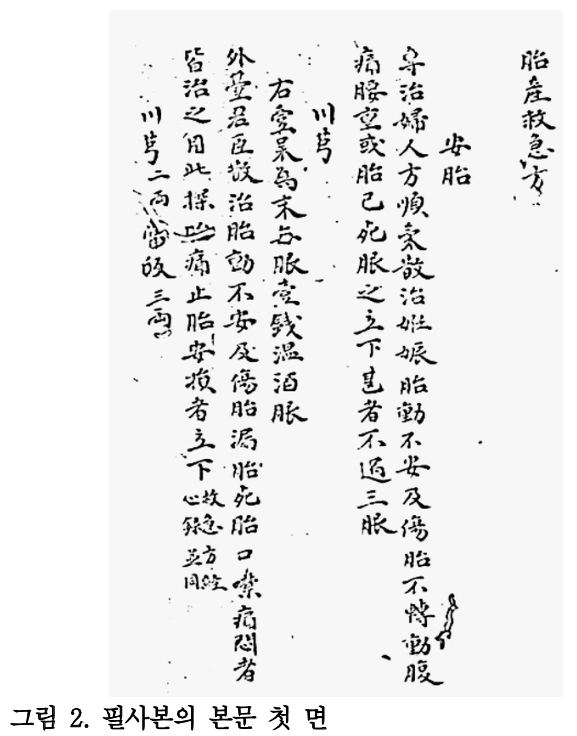 胎産救急方
安胎
專治婦人方順氣散治妊娠胎動不安及傷胎不轉動腹
痛腰重或胎已死服之立下甚者不過三服
川芎
右壹味爲末每服壹錢溫酒服
外臺君臣散治胎動不安及傷胎漏胎死胎口噤痛悶者
皆治之用此探 痛止胎安損者立下救急方經
心錄並同
川芎二兩當皈三兩
그림 2. 필사본의 본문 첫 면